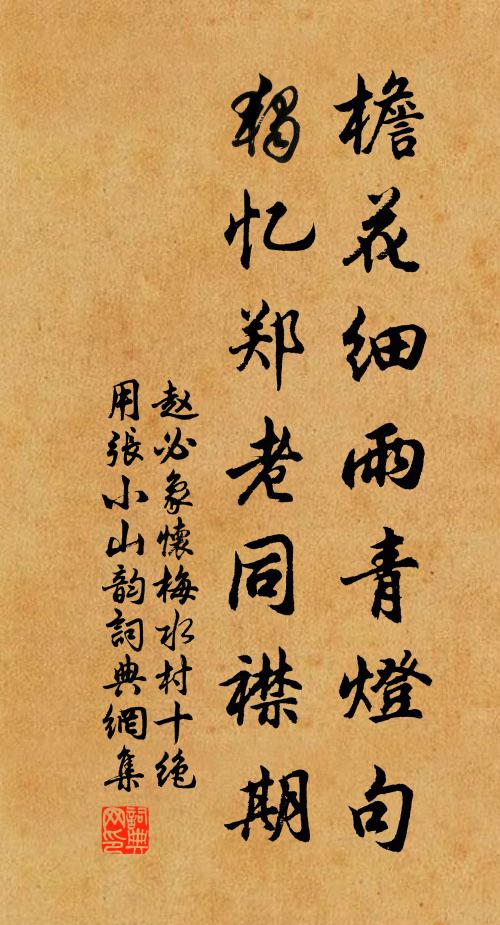 檐花细雨青燈句
獨忆郑老同襟期
赵必象懷梅水村十绝
用張小山韵詞典網集
詞典网印